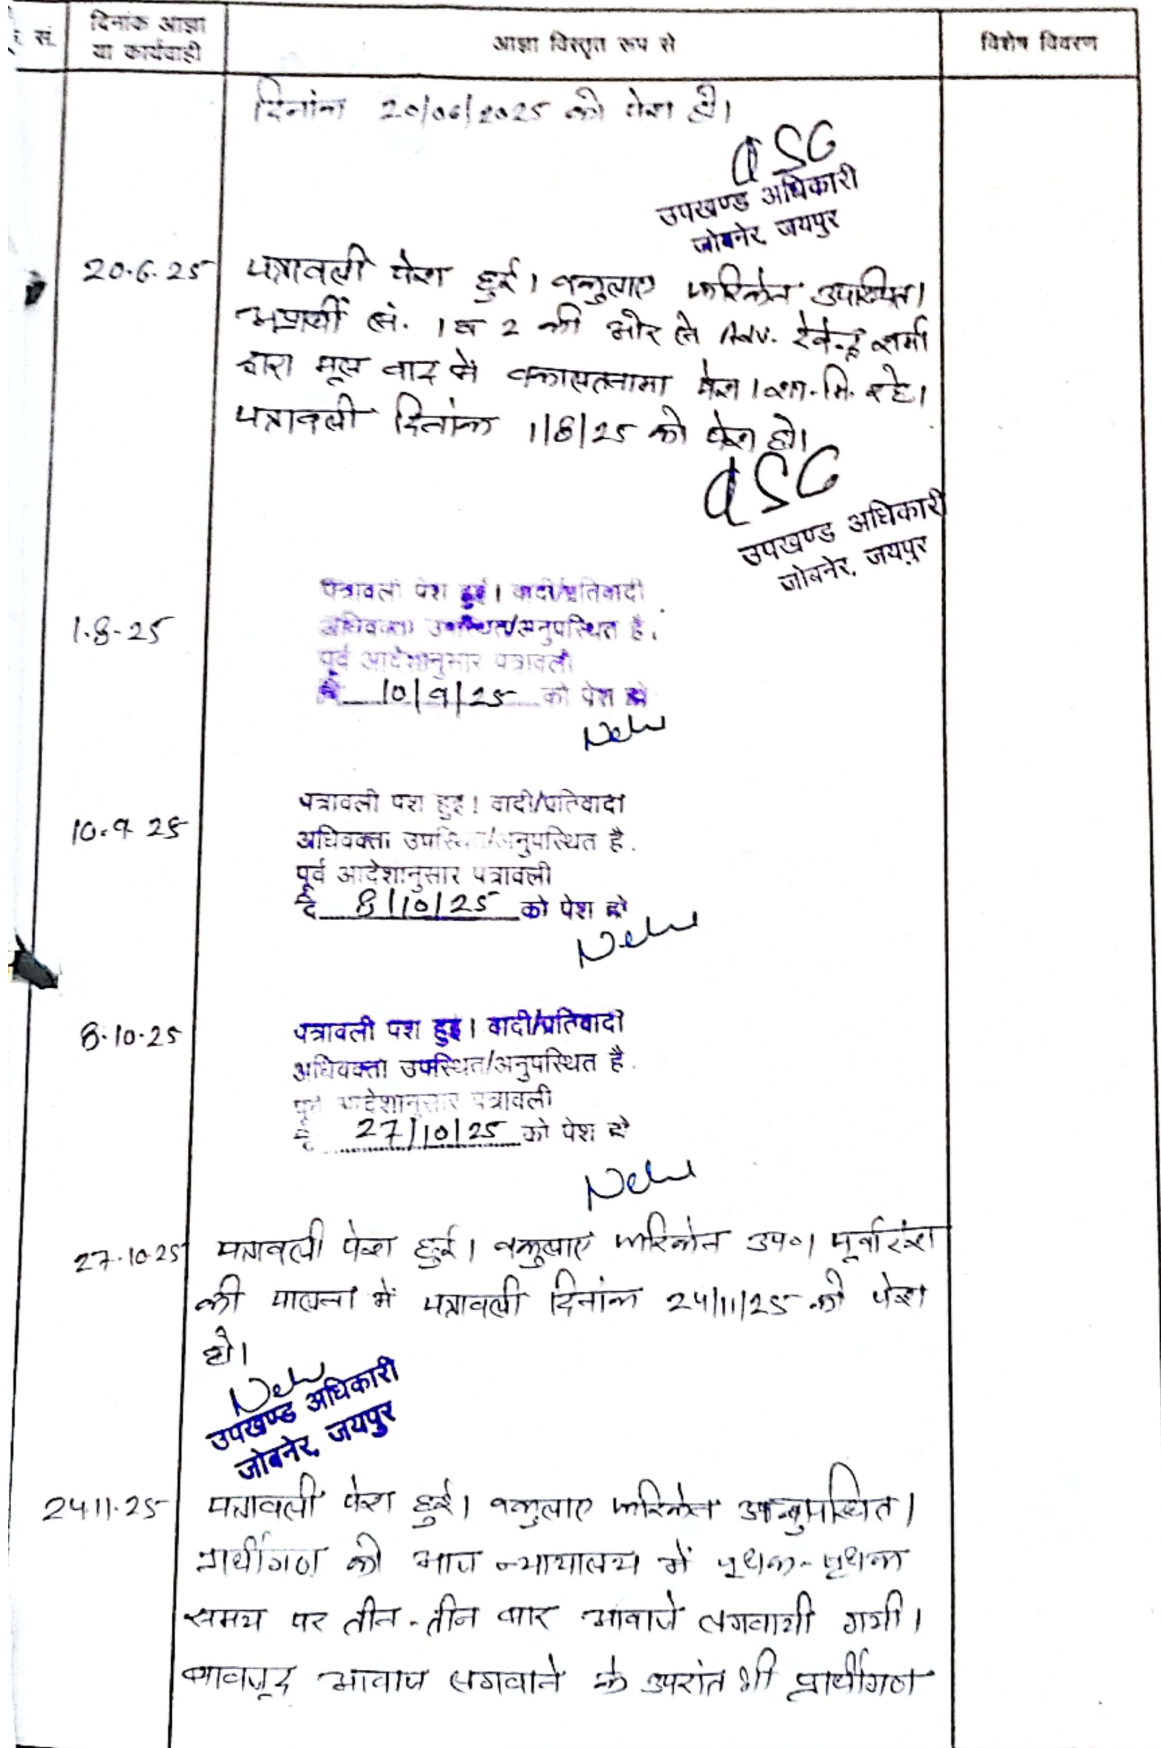 सं.
दिनांक आज्ञा
या कार्यवाही
आज्ञा विस्तृत रूप से
विशेष विवरण
दिनांक 20/06/2025 को पेश हो।
उपखण्ड अधिकारी
जोबनेर, जयपुर
20.6.25 पत्रावली पेश हुई। वकुलाए फरिकेन उपस्थित।
अप्रार्थी सं. 1 व 2 की ओर से Adv. देवेन्द्र शर्मा
द्वारा मूल वाद में वकालतनामा पेश। शा.मि. रहे।
पत्रावली दिनांक 1/8/25 को पेश हो।
उपखण्ड अधिकारी
जोबनेर, जयपुर
पत्रावली पेश हुई। वादी/प्रतिवादी
1.8.25 अधिवक्ता उपस्थित/अनुपस्थित है.
पूर्व आदेशानुसार पत्रावली
10/9/25 को पेश हो
पत्रावली पेश हुई। वादी/प्रतिवादी
10.9.25 अधिवक्ता उपस्थित/अनुपस्थित है.
पूर्व आदेशानुसार पत्रावली
दि 8/10/25 को पेश हो
8.10.25 पत्रावली पेश हुई। वादी/प्रतिवादी
अधिवक्ता उपस्थित/अनुपस्थित है.
पूर्व आदेशानुसार पत्रावली
दि 27/10/25 को पेश हो
27.10.25 पत्रावली पेश हुई। वकुलाए फरिकेन उप०। पूर्वादेश
की पालना में पत्रावली दिनांक 24/11/25 को पेश
हो।
उपखण्ड अधिकारी
जोबनेर, जयपुर
24.11.25 पत्रावली पेश हुई। वकुलाए फरिकेन अनुपस्थित।
प्रार्थीगण को आज न्यायालय में पृथक-पृथक
समय पर तीन-तीन बार आवाजे लगवायी गयी।
बावजूद आवाज लगवाने के उपरांत भी प्रार्थीगण